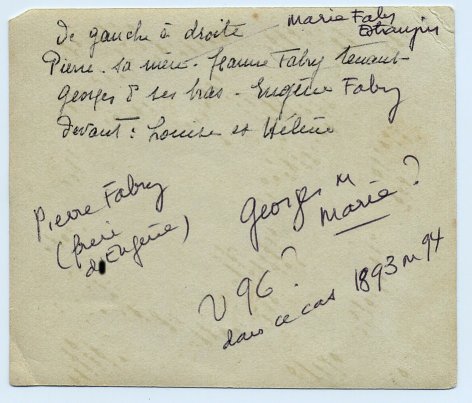 De gauche à droite
Marie Fabry
Estrangin
Pierre. sa mère. Jeanne Fabry tenant
Georges ds ses bras - Eugène Fabry
devant : Louise et Hélène
Pierre Fabry
(frère
d'Eugène)
Georges ou
Marie ?
V 96 ?
dans ce cas 1893 ou 94